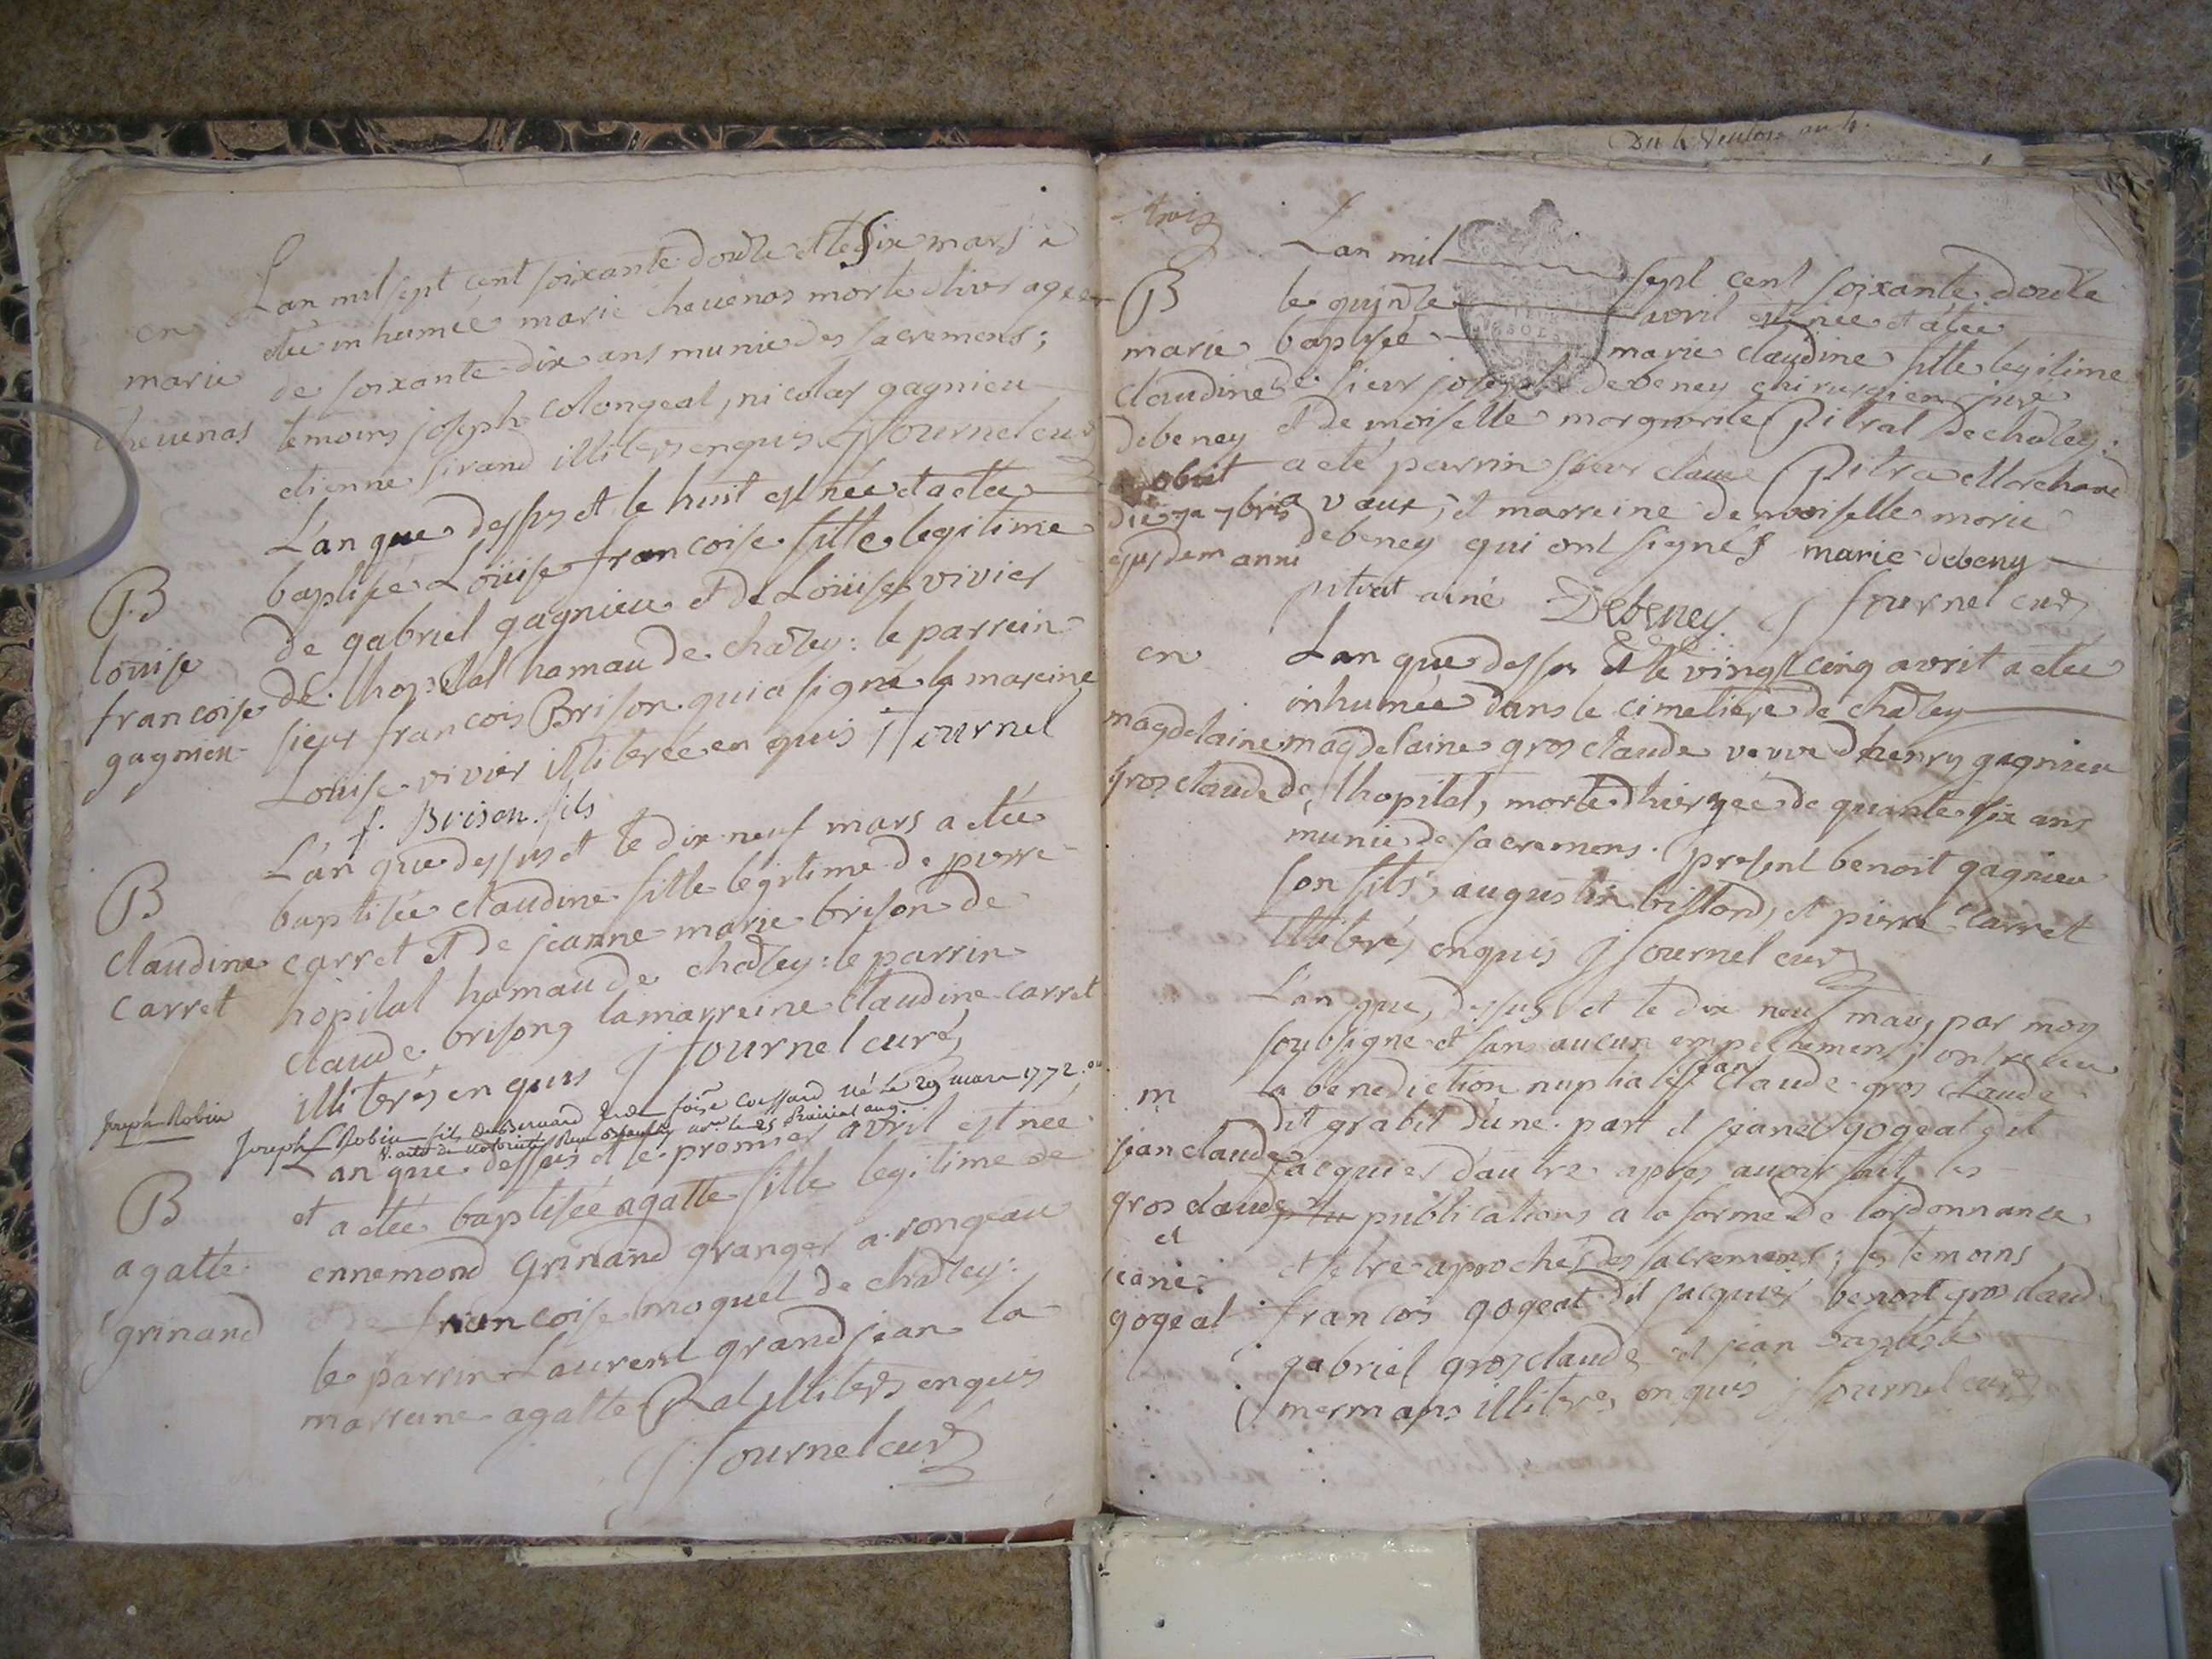 en
marie
cheuenas
Lan mil sept cent soixante douze et le six mars a
etée inhumée marie cheuenas morte d'hier agée
de soixante dix ans munie des sacremens;
temoins joseph colongeal, nicolas gagnieu
etienne sirand illiterés enquis j fournel curé
B
louise
francoise
gagnieu
L'an que dessus et le huit est née et a etée
baptisée Loüise francoise fille legitime
de gabriel gagnieu et de Loüise vivier
de lhopital hamau de chazey: le parrein
sieur francois Brison qui a signé la mareine
Loüise vivier illiterée enquis j fournel
f. Brison fils
B
claudine
carret
L'an que dessus et le dix neuf mars a etée
baptisée claudine fille legitime de pierre
carret et de jeanne marie brison de
hôpital hamau de chazey: le parrin
claude brison, la marreine claudine carret
illiterés enquis j fournel curé
Joseph Robin
Joseph Robin fils de Bernard et de foise Coissard né le 29 mars 1772
V. acte de notorieté le 25 Prairial an 9.
B
agatte
grinand
L'an que dessus et le premier avril est née
et a etée baptisée agatte fille legitime de
ennemond grinand granger a rongeau
et de francoise moquet de chazey:
le parrin Laurent grandjean la
marreine agatte Rat illiterés enquis
j fournel curé
trois
B
marie
claudine
debeney
obiit
die 7a 7bris
ejusdem anni
Lan mil sept cent soixante douze
le quinze avril est née et a etée
baptisée marie claudine fille legitime
de sieur joseph debeney chirurgien juré
et demoiselle marguerite Pitrat de chazey:
a eté parrin sieur claude Pitra Marchand
a vaux, et marreine demoiselle marie
debeney qui ont signés marie debeny
pitrat ainé Debeney j fournel curé
en
magdelaine
gros claude
Lan que dessus et le vingt cinq avril a etée
inhumée dans le cimetiere de chazey
magdelaine gros claude veuve d'henry gagnieu
de lhopital, morte d'hier agée de quante six ans
munie de sacremens. present benoit gagnieu
son fils, augustin billond, et pierre carret
illiterés enquis j fournel curé
m
jean claude
gros claude
et
jeane
gogeat
L'an que dessus et le dix neuf may, par moy
soubsigné et sans aucun empechement, ont receu
la benediction nuptialle jean claude gros claude
dit grabit d'une part et jeane gogeat dit
jacquier d'autre apres avoir fait les
publications a la forme de lordonnance
et s'etre aprochés des sacremens; les temoins
francois gogeat dit jacquier benoit gros claude
gabriel gros claude et jean baptiste
mermans illiterés enquis j fournel curé